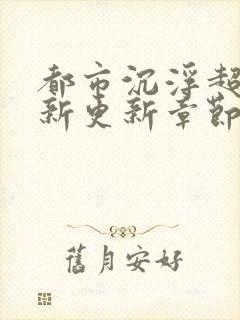 都市沉浮超
新更新章節
舊月安好